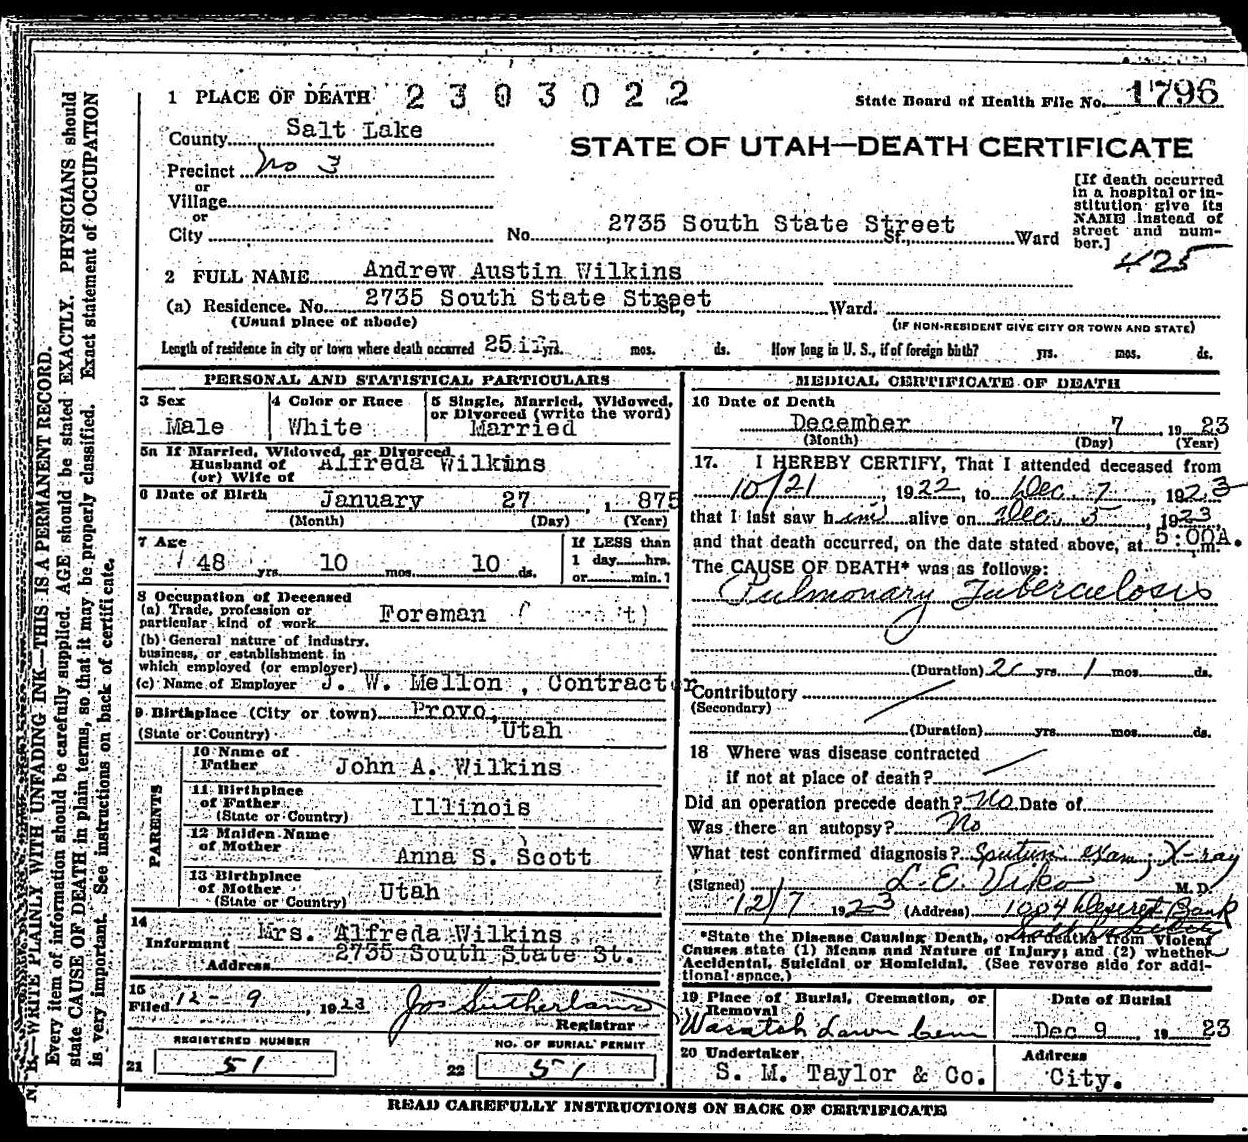 1 PLACE OF DEATH 2303022
State Board of Health File No. 1796
County Salt Lake
STATE OF UTAH—DEATH CERTIFICATE
Precinct No 3
or
Village
or
City
No. 2735 South State Street St., Ward
[If death occurred in a hospital or in-
stitution give its
NAME instead of
street and num-
ber.]
425
2 FULL NAME Andrew Austin Wilkins
(a) Residence. No. 2735 South State Street St., Ward.
(Usual place of abode)
(IF NON-RESIDENT GIVE CITY OR TOWN AND STATE)
Length of residence in city or town where death occurred 25 yrs. mos. ds. How long in U. S., if of foreign birth? yrs. mos. ds.
PERSONAL AND STATISTICAL PARTICULARS
3 Sex
Male
4 Color or Race
White
5 Single, Married, Widowed,
or Divorced (write the word)
Married
5a If Married, Widowed, or Divorced
Husband of Alfreda Wilkins
(or) Wife of
6 Date of Birth January 27 , 1 875
(Month) (Day) (Year)
7 Age
48 yrs 10 mos. 10 ds.
If LESS than
1 day hrs.
or min.?
8 Occupation of Deceased
(a) Trade, profession or
particular kind of work Foreman
(b) General nature of industry,
business, or establishment in
which employed (or employer)
(c) Name of Employer J. W. Mellon , Contractor
9 Birthplace (City or town) Provo,
(State or Country) Utah
PARENTS
10 Name of
Father John A. Wilkins
11 Birthplace
of Father Illinois
(State or Country)
12 Maiden Name
of Mother Anna S. Scott
13 Birthplace
of Mother Utah
(State or Country)
14
Informant Mrs. Alfreda Wilkins
Address 2735 South State St.
15
Filed 12-9, 1923 Jos Sutherland
Registrar
REGISTERED NUMBER
21 51
NO. OF BURIAL PERMIT
22 51
MEDICAL CERTIFICATE OF DEATH
16 Date of Death
December 7 1923
(Month) (Day) (Year)
17. I HEREBY CERTIFY, That I attended deceased from
10/21, 1922, to Dec. 7, 1923
that I last saw him alive on Dec. 5, 1923,
and that death occurred, on the date stated above, at 5:00A.m.
The CAUSE OF DEATH* was as follows:
Pulmonary Tuberculosis
(Duration) 2 yrs. 1 mos. ds.
Contributory
(Secondary)
(Duration) yrs. mos. ds.
18 Where was disease contracted
if not at place of death?
Did an operation precede death? No Date of
Was there an autopsy? No
What test confirmed diagnosis? Sputum exam, X-ray
(Signed) L. E. Viko M. D.
12/7 1923 (Address) 1004 Deseret Bank
Salt Lake City
*State the Disease Causing Death, or in deaths from Violent
Causes state (1) Means and Nature of Injury; and (2) whether
Accidental, Suicidal or Homicidal. (See reverse side for addi-
tional space.)
19 Place of Burial, Cremation, or
Removal
Wasatch Lawn Cem
Date of Burial
Dec 9 1923
20 Undertaker
S. M. Taylor & Co.
Address
City.
READ CAREFULLY INSTRUCTIONS ON BACK OF CERTIFICATE
N. B.—WRITE PLAINLY WITH UNFADING INK—THIS IS A PERMANENT RECORD.
Every item of information should be carefully supplied. AGE should be stated EXACTLY. PHYSICIANS should
state CAUSE OF DEATH in plain terms, so that it may be properly classified. Exact statement of OCCUPATION
is very important. See instructions on back of certificate.